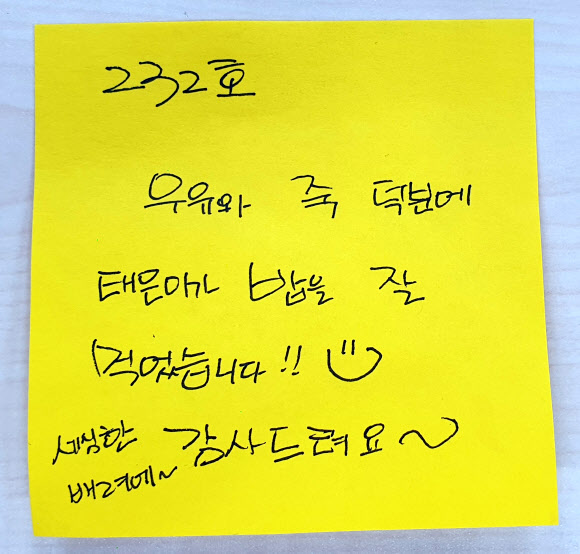 232호
우유와 죽 덕분에
태은이가 밥을 잘
먹었습니다!!
세심한
배려에~ 감사드려요~